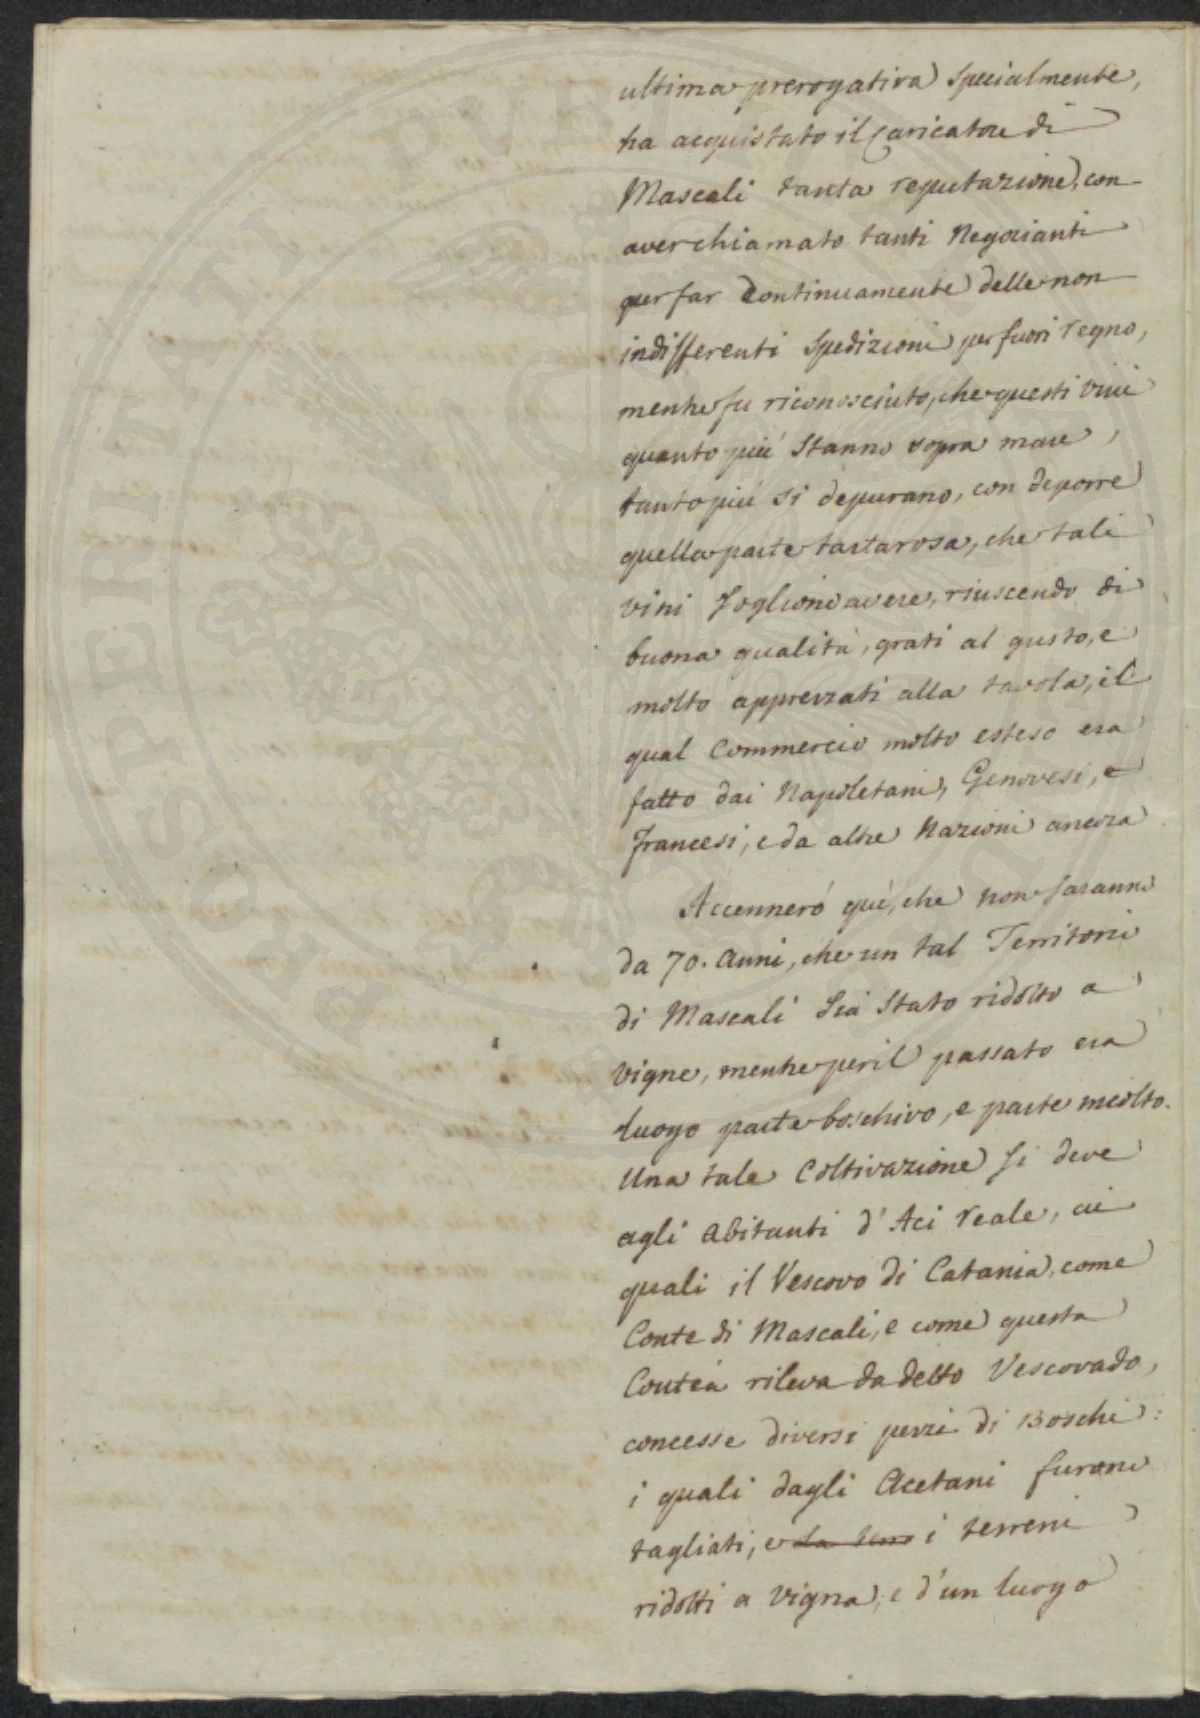 ultima prerogativa specialmente,
ha acquistato il Caricatore di
Mascali tanta reputazione, con
aver chiamato tanti Negozianti
per far Continuamente delle non
indifferenti Spedizioni per fuori regno,
mentre fu riconosciuto, che questi vini
quanto più Stanno sopra mare,
tanto più si depurano, con deporre
quella parte tartarosa, che tali
vini Sogliono avere, riuscendo di
buona qualità, grati al gusto, e
molto apprezzati alla tavola, il
qual Commercio molto esteso era
fatto dai Napoletani, Genovesi, e
francesi, e da altre Nazioni ancora
Accennerò quì, che non saranno
da 70. Anni, che un tal Territorio
di Mascali Sia Stato ridotto a
vigne, mentre per il passato era
luogo parte boschivo, e parte incolto.
Una tale Coltivazione si deve
agli Abitanti d'Aci reale, ai
quali il Vescovo di Catania, come
Conte di Mascali, e come questa
Contea rileva da detto Vescovado,
concesse diversi pezzi di Boschi:
i quali dagli Acetani furono
tagliati, e da terre i terreni
ridotti a vigna, e d'un luogo
PROSPERITATI PVBLICAE